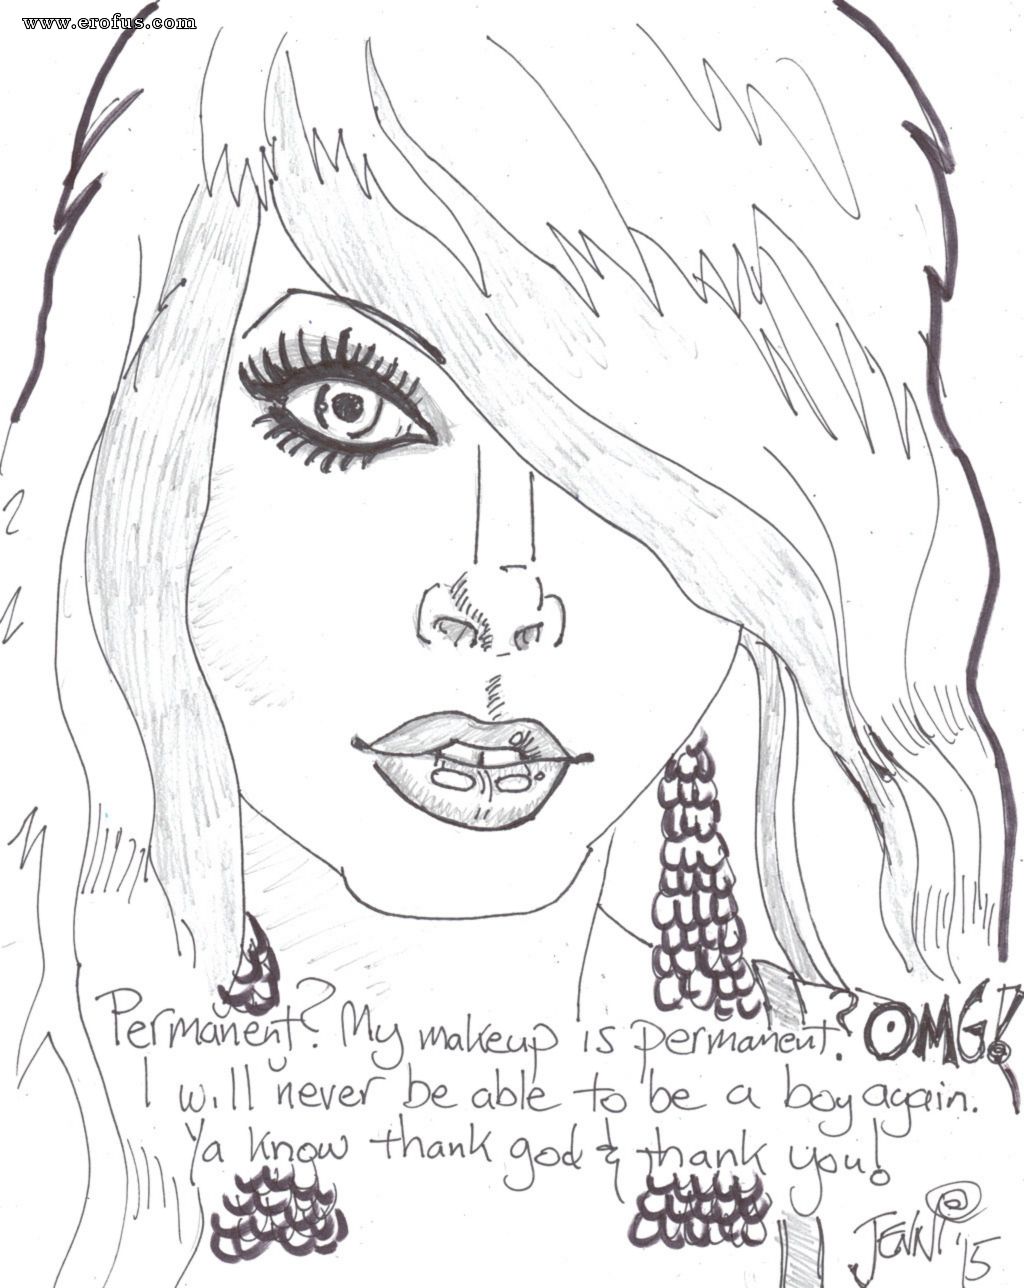 www.erofus.com
Permanent? My makeup is permanent? OMG!
I will never be able to be a boy again.
Ya know thank god & thank you!
JENNI '15